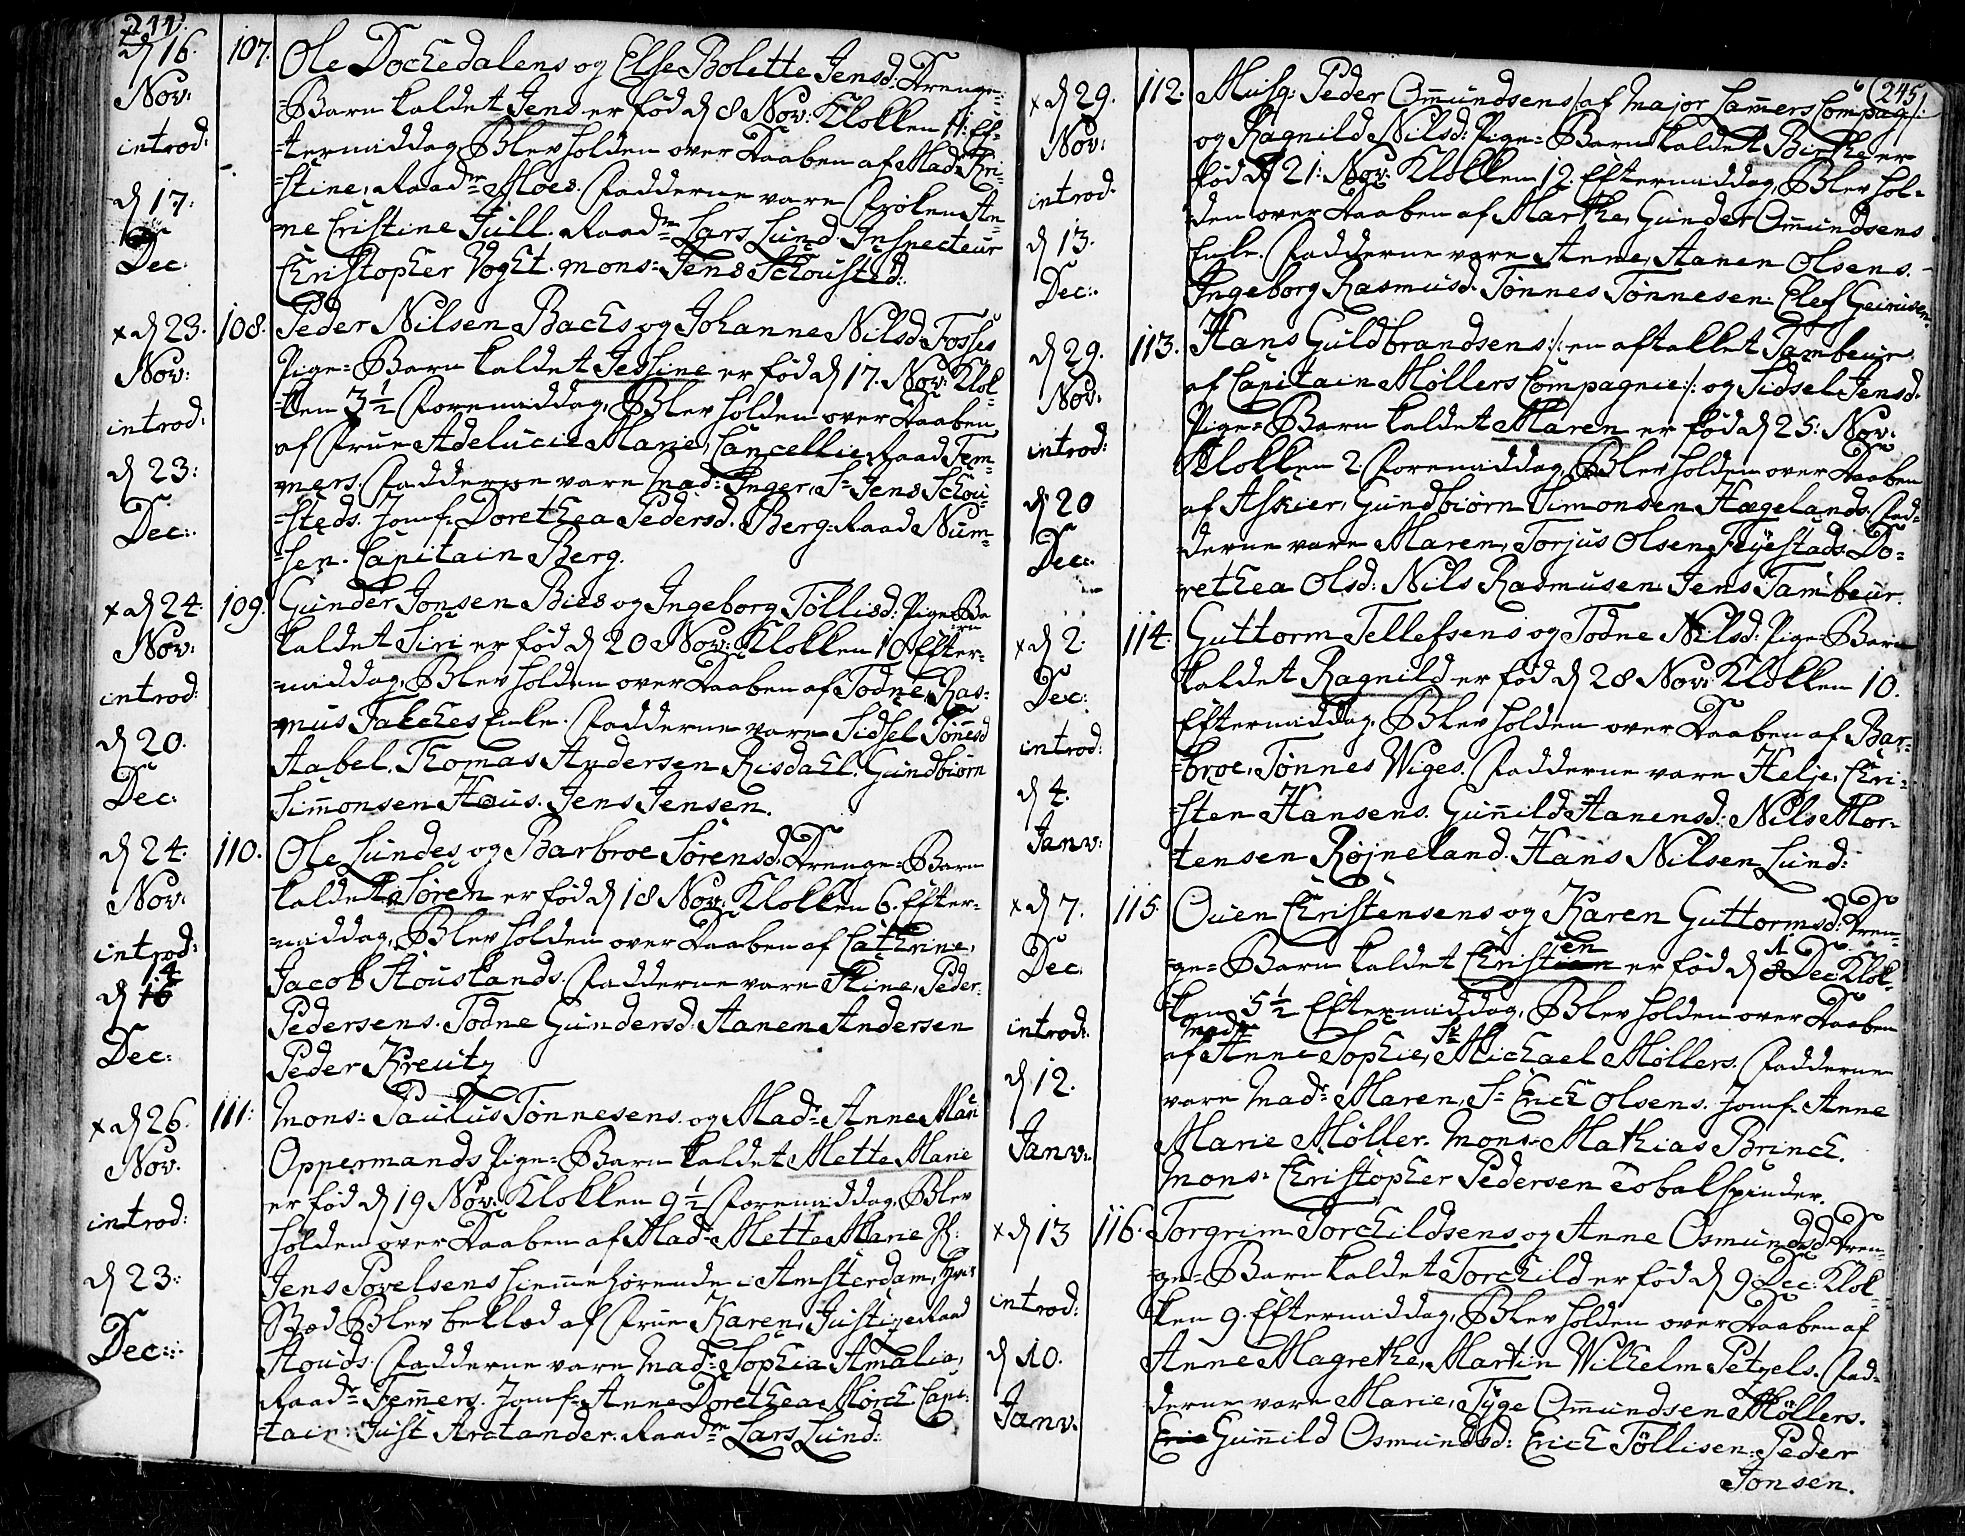 244.
d 16. Nov: introd: d 17. Dec:
107. Ole Dochedalens og Else Bolette Jensd: Drenge-
=Barn kaldet Jens er fød d 8 Nov: Klokken 11: Ef-
=termiddag, Blev holden over Daaben af Mad: Kri-
=stine, Raadm Moes. Fadderne vare Frøken An-
ne Cristine Jull. Raadm Lars Lund. Inspecteur
Christopher Voght. mons: Jens Schousted:
x d 23. Nov: introd: d 23: Dec:
108. Peder Nilsen Bachs og Johanne Nilsd: Fosses
Pige=Barn kaldet Jessine er fød d 17. Nov: Klok-
=ken 3½ Formiddag, Blev holden over Daaben
af Frue Adelucie Marie, Cancellie Raad Fem-
mers. Fadderne vare Mad: Inger, Sr Jens Schou-
=steds. Jomf: Dorethea Pedersd. Berg=Raad Num-
=sen. Capitain Berg.
x d 24. Nov: introd: d 20. Dec:
109. Gunder Jonsen Bies og Ingeborg Tøllisd: Pige=Barn
kaldet Siri er fød d 20 Nov: Klokken 10 Efter-
=middag, Blev holden over Daaben af Todne, Ras-
mus Falches Enke. Fadderne vare Sidsel Tønnesd
Aabel. Thomas Andersen Risdahl. Gundbiørn
Simonsen Haus. Jens Jensen.
d 24. Nov: introd: d 14 Dec:
110. Ole Lundes og Barbroe Sørensd: Drenge=Barn
kaldet Søren er fød d 18 Nov: Klokken 6. Efter-
=middag, Blev holden over Daaben af Cathrine,
Jacob Houslands. Fadderne vare Stine, Peder
Pedersens. Todne Gundersd. Aanen Andersen
Peder Kreutz
x d 26. Nov. introd: d 23: Dec:
111: Mons: Paulus Tønnesens og Mad: Anne Mari
Oppermands Pige=Barn kaldet Mette Marie
er fød d 19 Nov: Klokken 9½ Formiddag, Blev
holden over Daaben af Mad: Mette Marie Sr:
Jens Povelsens hiemmehørende i Amsterdam, hvis
Sted Blev beklæd af Frue Karen, Justize Raad
Houds. Fadderne vare Mad: Sophia Amalia,
Raadm Femmers. Jomf: Anne Dorethea Mørch Capi-
=tain Just Arctander. Raadm Lars Lund:
245.
x d 29. Nov: introd. d 13. Dec:
112. Musq: Peder Omundsens /: af Major Lammers Compag :/
og Ragnild Nilsd: Pige=Barn kaldet Birthe er
fød d 21: Nov: Klokken 12. Eftermiddag, Blev hol-
den over Daaben af Marthe, Gunder Omundsens
Enke. Fadderne vare Anne, Aanen Olsens.
Ingeborg Rasmusd. Tønnes Tønnesen. Elef
d 29. Nov: introd: d 20 Dec:
113. Hans Guldbrandsens /: en aftakket Tambeur
af Capitain Møllers Compagnie :/ og Sidsel Jensd.
Pige=Barn kaldet Maren er fød d 25: Nov:
Klokken 2 Formiddag, Blev holden over Daaben
af Askier, Gundbiørn Simonsen Hægelands. Fad-
derne vare Maren, Torjus Olsen Feyestads. Do-
rethea Olsd: Nils Rasmusen. Jens Tambeur.
x d 2. Dec: introd: d 4. Janv:
114. Guttorm Tellefsens og Todne Nilsd: Pige=Barn
kaldet Ragnild er fød d 28 Nov: Klokken 10.
Eftermiddag, Blev holden over Daaben af Bar-
=broe, Tønnes Wiges. Fadderne vare Helje, Chri-
=sten Hansens. Gunnild Aanensd: Nils Mor-
tensen Røjneland. Hans Nilsen Lund:
x d 7. Dec: introd: d 12. Janv:
115. Ouen Christensens og Karen Guttormsd: Dren-
=ge=Barn kaldet Christen er fød d 1 Dec: Klok-
=ken 5½ Eftermiddag, Blev holden over Daaben
af Madme Anne Sophie, Sr Michael Møllers. Fadderne
vare Mad: Maren, Sr Erich Olsens. Jomf: Anne
Marie Møller. Mons: Mathias Brinch.
Mons: Christopher Pedersen Tobakspinder.
x d 13 introd: d 10. Janv:
116. Torgrim Torchildsens og Anne Osmundsd: Dren-
=ge=Barn kaldet Torchild er fød d 9. Dec: Klok-
ken 9. Eftermiddag, Blev holden over Daaben af
Anne Magrethe, Martin Wilhelm Petzels. Fad-
derne vare Marie, Tyge Omundsen Møllers.
Gunnild Osmundsd: Erich Tøllisen. Peder
Jonsen.